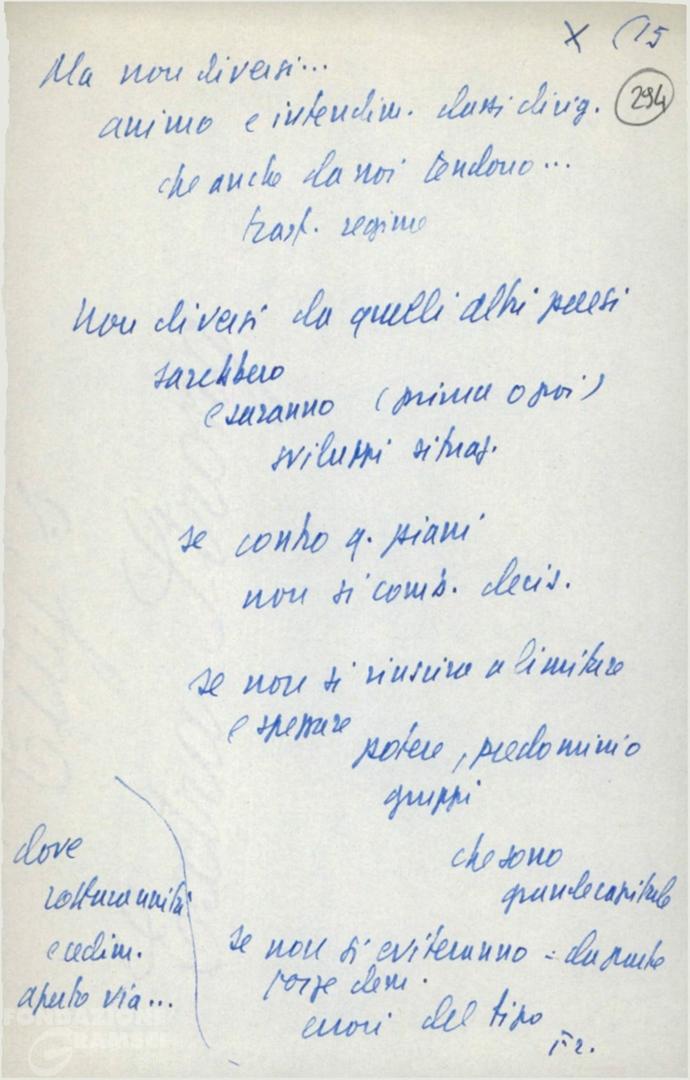 X (15
294
Ma non diversi...
animo e intendim. classi dirig.
che anche da noi tendono...
trasf. regime
Non diversi da quelli altri paesi
sarebbero
e saranno (prima o poi)
sviluppi situaz.
se contro q. piani
non si comb. decis.
se non si riuscirà a limitare
e spezzare
potere, predominio
gruppi
che sono
grande capitale
se non si eviteranno - da parte
forze dem.
errori del tipo
Fr.
dove
rottura unità
e cedim.
aperto via...
FONDAZIONE
GRAMSCI